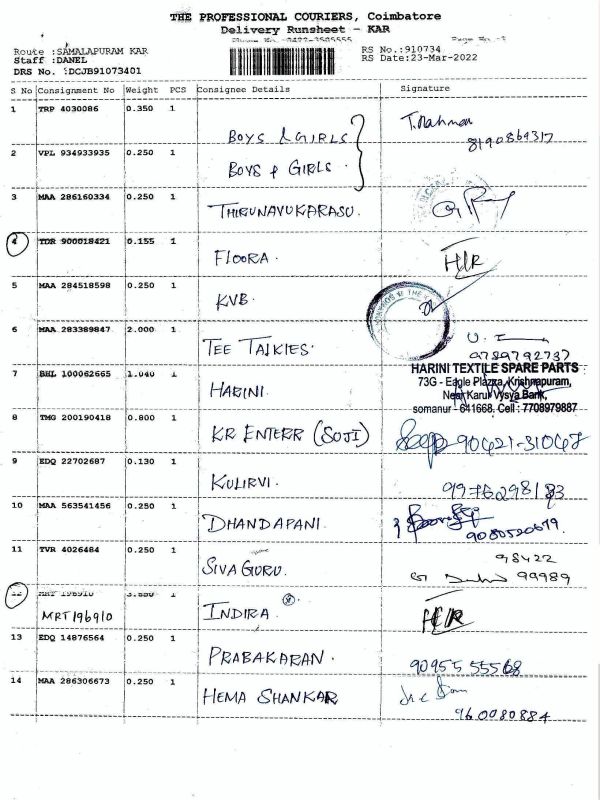 THE PROFESSIONAL COURIERS, Coimbatore
Delivery Runsheet - KAR
Route :SAMALAPURAM KAR
Staff :DANEL
DRS No. :DCJB91073401
RS No.:910734
RS Date:23-Mar-2022
S No Consignment No Weight PCS Consignee Details Signature
1 TRP 4030086 0.350 1 BOYS & GIRLS T. Rahman 8190869317
2 VPL 934933935 0.250 1 BOYS & GIRLS
3 MAA 286160334 0.250 1 THIRUNAVUKARASU.
4 TDR 900018421 0.155 1 FLOORA. H/R
5 MAA 284518598 0.250 1 KVB.
6 MAA 283389847 2.000 1 TEE TALKIES. 9789792737
7 BHL 100062665 1.040 1 HARINI
HARINI TEXTILE SPARE PARTS
73G - Eagle Plazza, Krishnapuram,
Near Karur Vysya Bank,
somanur - 641668. Cell : 7708979887
8 TMG 200190418 0.800 1 KR ENTERR (SOJI) 90421-31048
9 EDQ 22702687 0.130 1 KULIRVI.
10 MAA 563541456 0.250 1 DHANDAPANI. 9080520679.
11 TVR 4026484 0.250 1 SIVA GURU. 98422 99989
12 MRT 196910 1 INDIRA. H/R
MRT196910
13 EDQ 14876564 0.250 1 PRABAKARAN. 90955 55568
14 MAA 286306673 0.250 1 HEMA SHANKAR 960080884